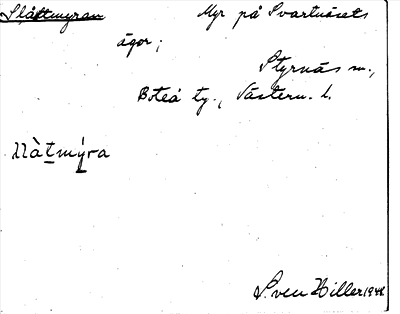 Slåttmyran Myr på Svartnäsets
ägor;
Styrnäs sn.,
Boteå tg., Västern. l.
Sven Hiller 1942